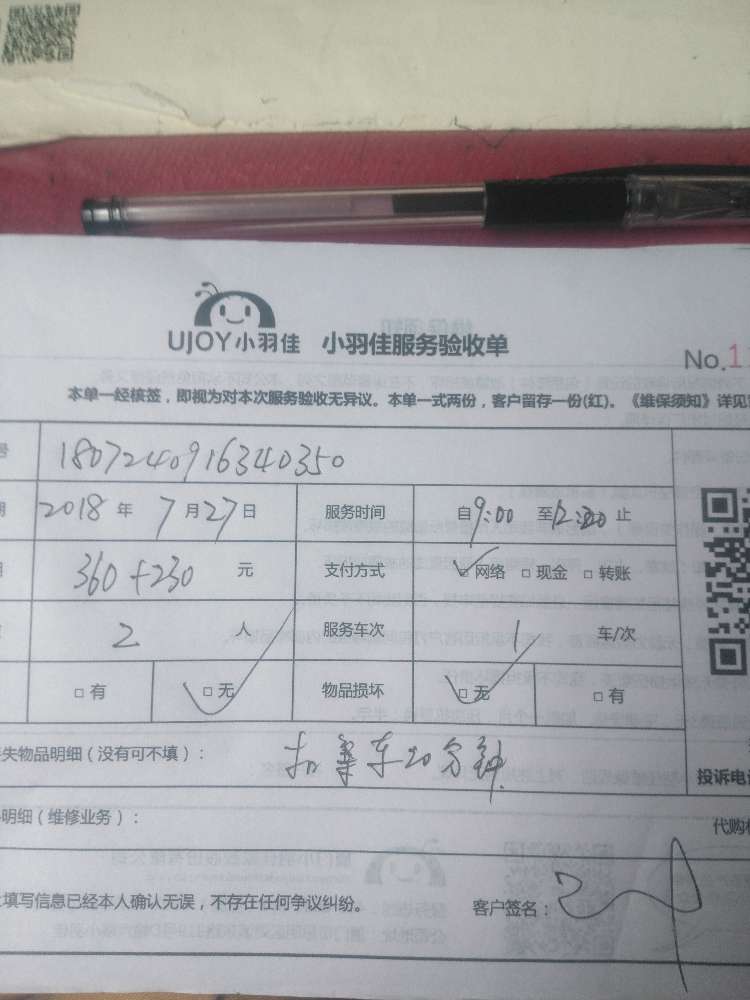 UJOY小羽佳 小羽佳服务验收单
No.1
本单一经核签，即视为对本次服务验收无异议。本单一式两份，客户留存一份(红)。《维保须知》详见
号 1807240916340350
期 2018 年 7 月 27 日 服务时间 自 9:00 至 12:20 止
360+230 元 支付方式 ☑ 网络 □ 现金 □ 转账
2 人 服务车次 1 车/次
□ 有 ☑ 无 物品损坏 ☑ 无 □ 有
失物品明细（没有可不填）： 扣 等车20分钟
投诉电
明细（维修业务）：
代购
填写信息已经本人确认无误，不存在任何争议纠纷。 客户签名：